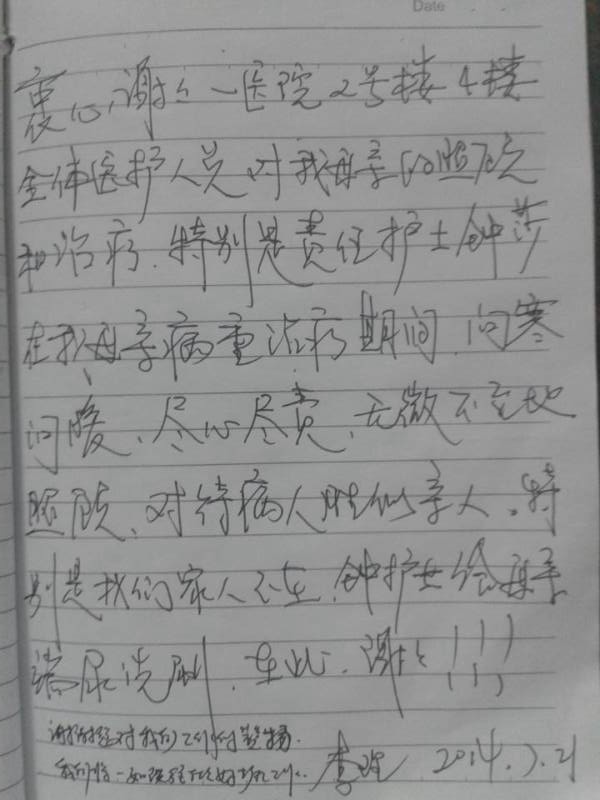 Date
衷心谢谢一医院2号楼4楼
全体医护人员对我母亲的照顾
和治疗.特别是责任护士钟莎
在我母亲病重治疗期间.问寒
问暖、尽心尽责、无微不至地
照顾、对待病人胜似亲人。特
别是我们家人不在.钟护士给母亲
端尿洗刷.在此.谢谢!!!
谢谢 对我们工作的赞扬.
我们将一如既往 做好 工作.
李 2014.7.21